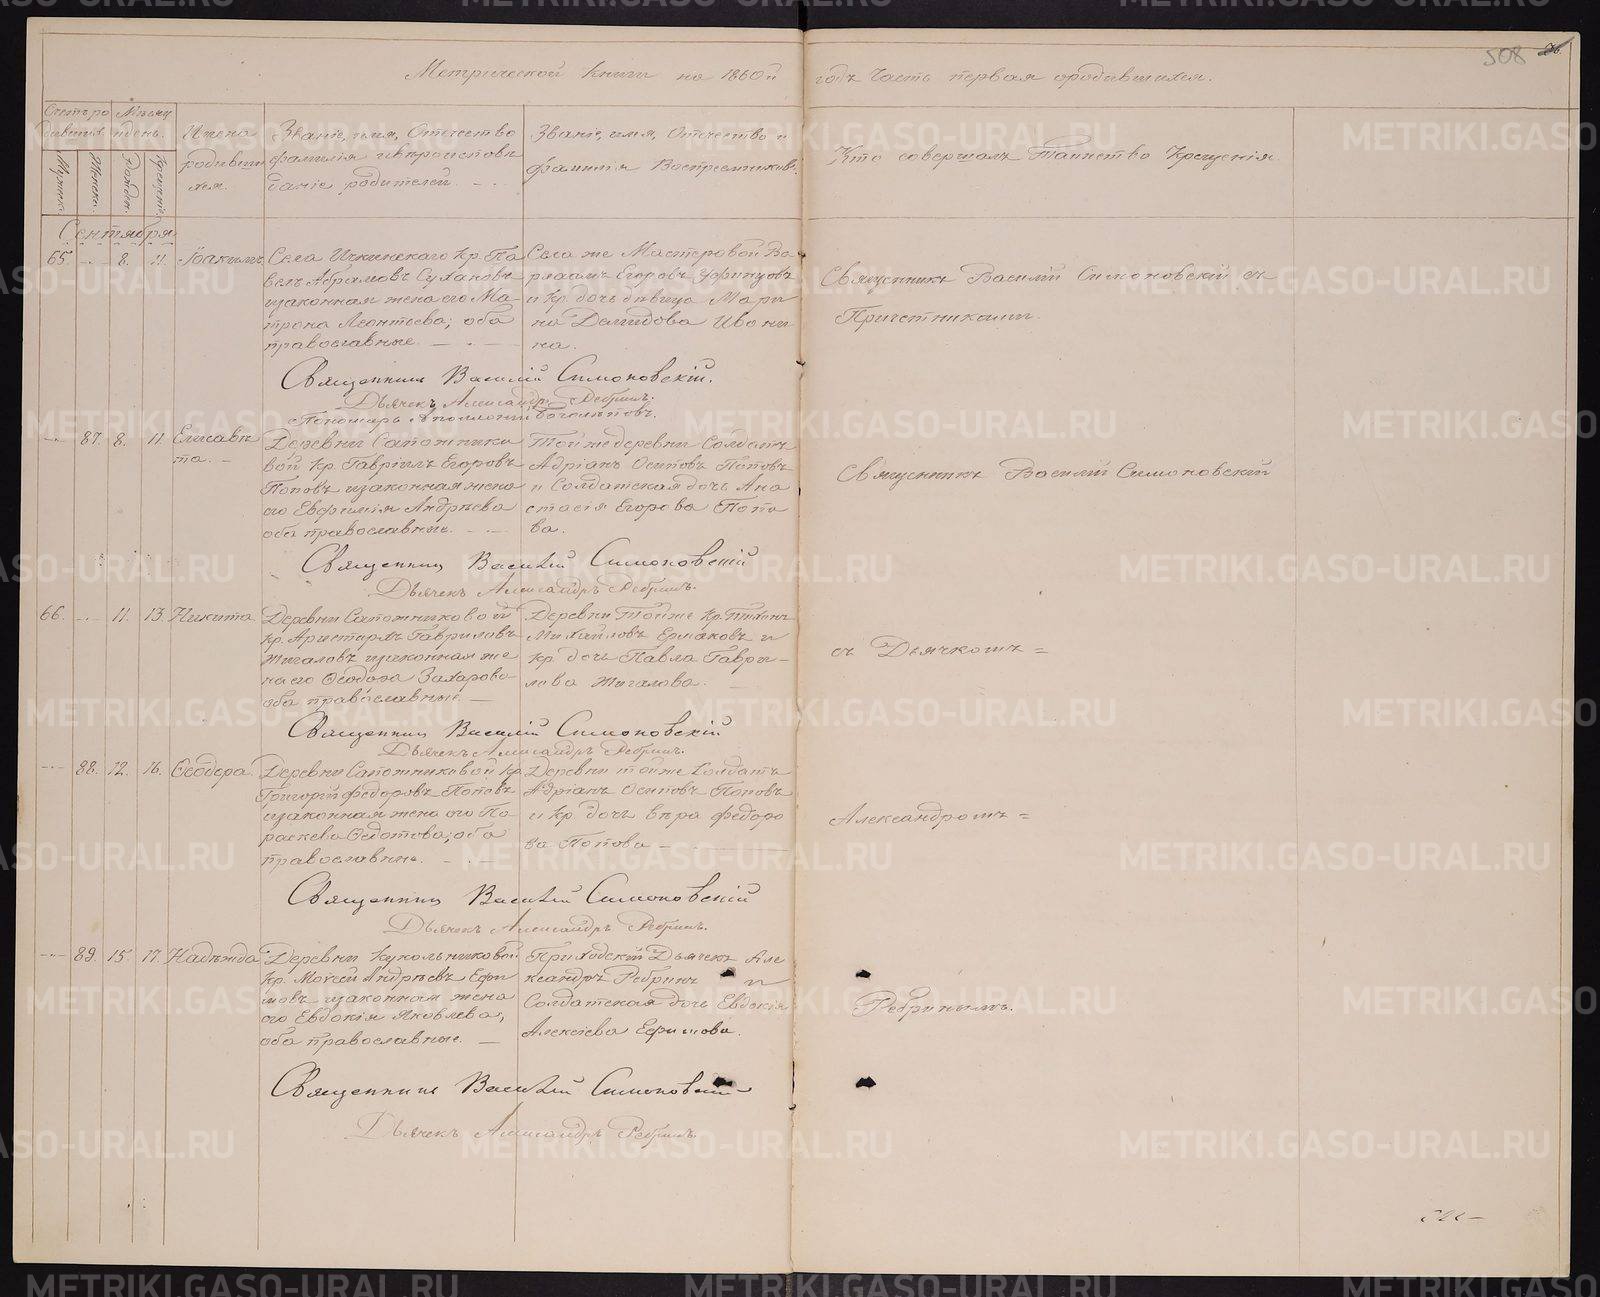 508
Метрической книги на 1860й годъ часть первая о родившихся.
Счетъ родившихся.
Мѣсяцъ и день.
Имена родившихся.
Званіе, имя, Отчество
фамилія и вѣроисповѣ
даніе родителей.
Званіе, имя, Отчество и
фамилія Воспреемниковъ.
Кто совершалъ Таинство Крещенія
Мужеск.
Женска.
Рожден.
Крещенія.
Сентября
65. 8. 11. Іоакимъ
Села Ичкинскаго Кр. Па
велъ Абрамовъ Сухановъ
и законная жена его Ма-
трона Леонтьева; оба
православные.
Села же Мастеровой Ва
рлаамъ Егоровъ
и Кр. дочь девица Мари
на Демидова Ивони
на.
Священникъ Василій Симоновскій съ
Причетниками.
Священникъ Василій Симоновскій.
Дьячекъ Александръ Ребринъ.
Пономарь Аполлоній Боголѣповъ.
87. 8. 11. Елисаве
та.
Деревни Сапожнико
вой Кр. Гавріилъ Егоровъ
Поповъ и законная жена
его Евфимія Андрѣева
оба православные.
Той же деревни Солдатъ
Адріанъ Осиповъ Поповъ
и Солдатская дочь Ана
стасія Егорова Попо
ва.
Священникъ Василій Симоновскій
Священникъ Василій Симоновскій
Дьячекъ Александръ Ребринъ.
66. 11. 13. Никита
Деревни Сапожниковой
кр. Аристархъ Гавриловъ
Жигаловъ и законная же
на его Ѳеодора Захарова
оба православные.
Деревни Тойже Кр.
Михайловъ Ермаковъ и
Кр. дочь Павла Гаври-
лова Жигалова.
съ Дьячкомъ =
Священникъ Василій Симоновскій
Дьячекъ Александръ Ребринъ.
88. 12. 16. Ѳеодора
Деревни Сапожниковой Кр.
Григорій Федоровъ Поповъ
и законная жена его Па
раскева Федотова; оба
православные.
Деревни тойже Солдатъ
Адріанъ Осиповъ Поповъ
и Кр. дочь Вѣра Федоро
ва Попова
Александромъ =
Священникъ Василій Симоновскій
Дьячекъ Александръ Ребринъ.
89. 15. 17. Надѣжда
Деревни Кукольниковой
Кр. Моисей Андрѣевъ Ефи
мовъ и законная жена
его Евдокія Яковлева,
оба православные.
Приходскій Дьячекъ Але
ксандръ Ребринъ и
Солдатская дочь Евдокія
Алексіева Ефимова.
Ребринымъ.
Священникъ Василій Симоновскій
Дьячекъ Александръ Ребринъ.
METRIKI.GASO-URAL.RU